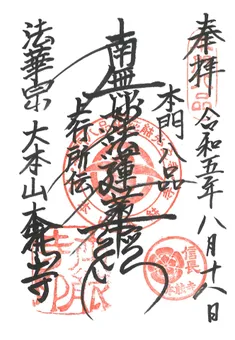 奉拝
令和五年八月十八日
本門八品
南無妙法蓮華経
上行所伝
法華宗 大本山本能寺
信長